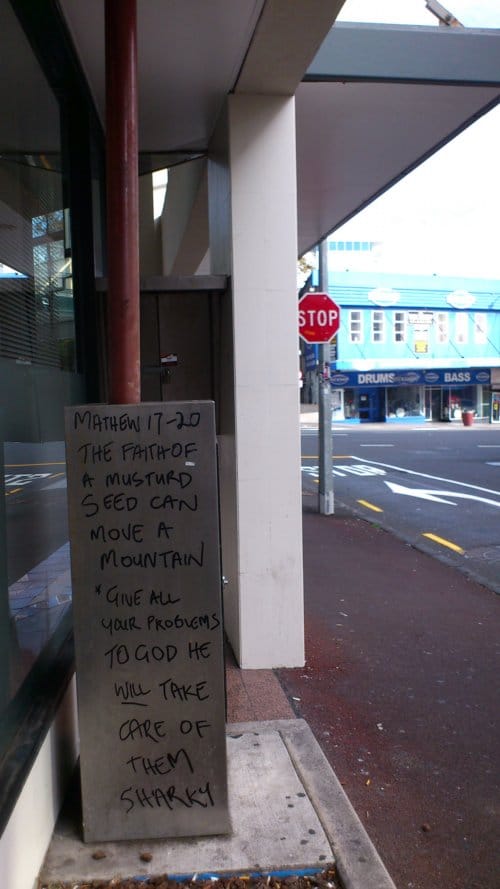 MATHEW 17-20
THE FAITH OF
A MUSTURD
SEED CAN
MOVE A
MOUNTAIN
*GIVE ALL
YOUR PROBLEMS
TO GOD HE
WILL TAKE
CARE OF
THEM
SHARKY
STOP
DRUMS
BASS